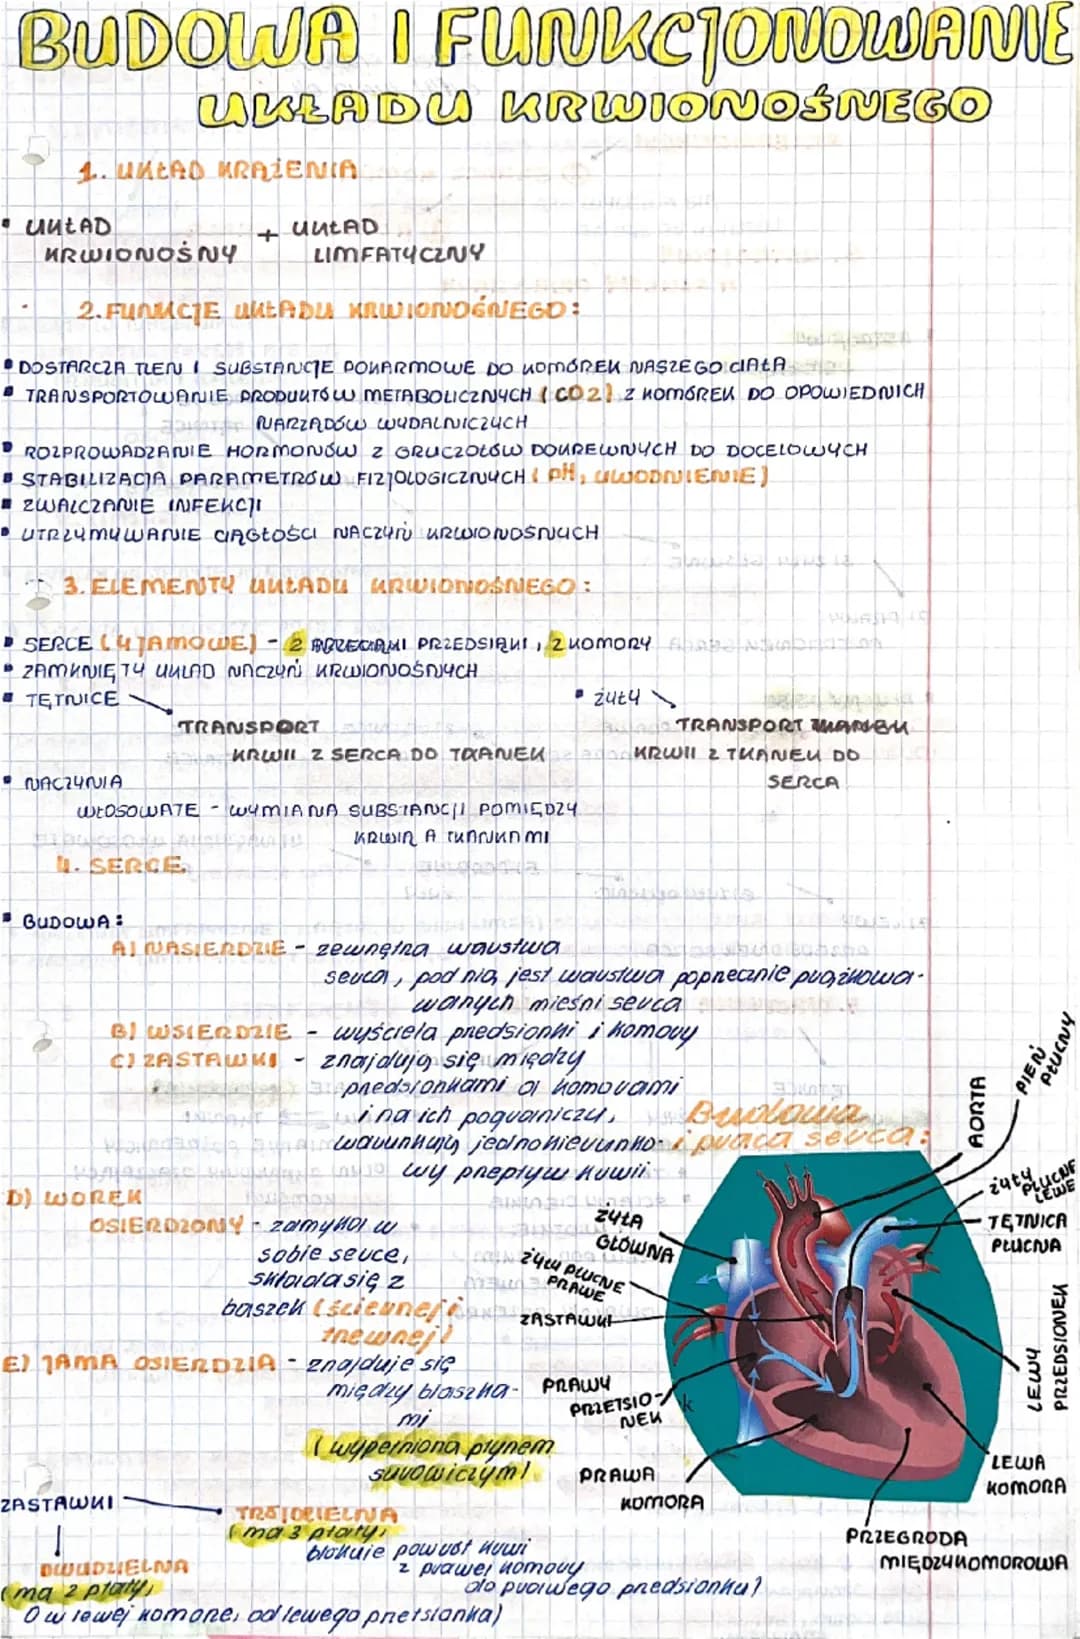 BUDOWA I FUNKCJONOWANIE
UKŁADU KRWIONOŚNEGO
1. UKŁAD KRĄŻENIA
UKŁAD + UKŁAD
KRWIONOŚNY LIMFATYCZNY
2. FUNKCJE UKŁADU KRWIONOŚNEGO:
DOSTARCZA TLEN I SUBSTANCJE POKARMOWE DO KOMÓREK NASZEGO CIAŁA
TRANSPORTOWANIE PRODUKTÓW METABOLICZNYCH (CO2) Z KOMÓREK DO OPOWIEDNICH
NARZĄDÓW WYDALNICZYCH
ROZPROWADZANIE HORMONÓW Z GRUCZOŁÓW DOKREWNYCH DO DOCELOWYCH
STABILIZACJA PARAMETRÓW FIZJOLOGICZNYCH (pH, UWODNIENIE)
ZWALCZANIE INFEKCJI
UTRZYMYWANIE CIĄGŁOŚCI NACZYŃ KRWIONOŚNYCH
3. ELEMENTY UKŁADU KRWIONOŚNEGO:
SERCE (4 JAMOWE) - 2 PRZEDSIĄKI, 2 KOMORY
ZAMKNIĘTY UKŁAD NACZYŃ KRWIONOŚNYCH
TĘTNICE
TRANSPORT
KRWII Z SERCA DO TKANEK
ŻYŁY
TRANSPORT
KRWII Z TKANEK DO
SERCA
NACZYNIA
WŁOSOWATE - WYMIANA SUBSTANCJI POMIĘDZY
KRWIĄ A TKANKAMI
4. SERCE
BUDOWA:
A) NASIERDZIE - zewnętrna warstwa
serca, pod nią jest warstwa poprzecznie prążkowa-
wanych mieśni serca
B) WSIERDZIE - wyściela przedsionki i komory
C) ZASTAWKI - znajdują się między
przedsionkami a komorami
i na ich pograniczu,
warunkują jednokierunko-
wy przepływ krwii
D) WOREK
OSIERDZONY - zamyka w
sobie serce,
składa się z
blaszek (ściennej i
trzewnej)
E) JAMA OSIERDZIA - znajduje się
między blaszka-
mi
(wypełniona płynem
surowiczym)
ZASTAWKI
TRÓJDZIELNA
(ma 3 płaty,
blokuje powrót krwi
z prawej komory
do prawego przedsionka)
DWUDZIELNA
(ma 2 płaty,
w lewej komorze, od lewego
Budowa
i praca serca:
AORTA
PIEŃ
PŁUCNY
ŻYŁY
PŁUCNE
LEWE
TĘTNICA
PŁUCNA
LEWY
PRZEDSIONEK
LEWA
KOMORA
PRZEGRODA
MIĘDZYKOMOROWA
ŻYŁA
GŁÓWNA
ŻYŁY PŁUCNE
PRAWE
ZASTAWKI
PRAWY
PRZETSIO-
NEK
k
PRAWA
KOMORA